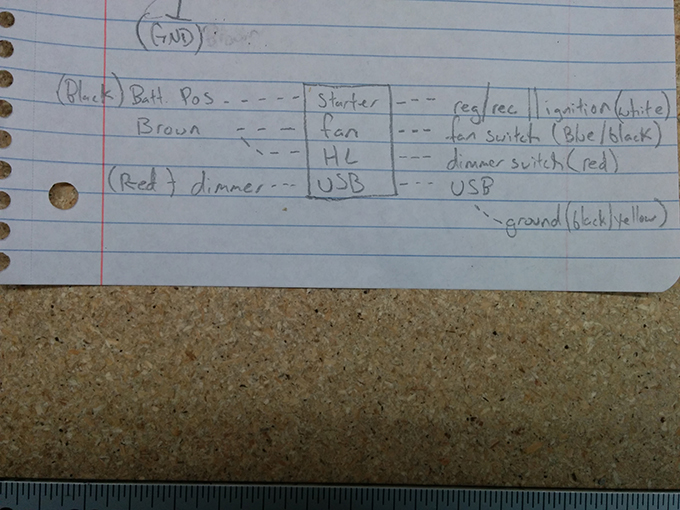 (GND)
(Black) Batt. Pos - - - - - Starter - - - reg/rec || ignition (white)
Brown - - - fan - - - fan switch (Blue/black)
- - - HL - - - dimmer switch (red)
(Red) dimmer - - - USB - - - USB
ground (black/yellow)